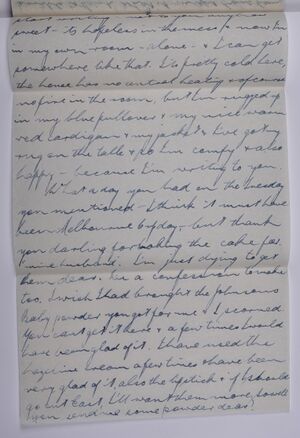 sweet - it's hopeless in the mess & now I'm
in my own room - alone - & I can get
somewhere like that. It's pretty cold here,
the house has no central heating & of course
no fire in the room, but I'm rugged up
in my blue pullover & my nice warm
red cardigan & my jacket & I've got my
rug on the table & so I'm comfy & also
happy - because I'm writing to you.
What a day you had on the Tuesday
you mentioned - I think it must have
been Melbourne Cup day - but thank
you darling for making the cake for
mine husband. I'm just dying to get
them dear. I've a confession to make
too. I wish I had brought the Johnsons
Baby powder you got for me & I scorned.
You can't get it here & a few times I would
have been glad of it. I have used the
cream a few times & have been
very glad of it, also the lipstick & if I should
go out East, I'll want them more, so will
you send me some powder dear?